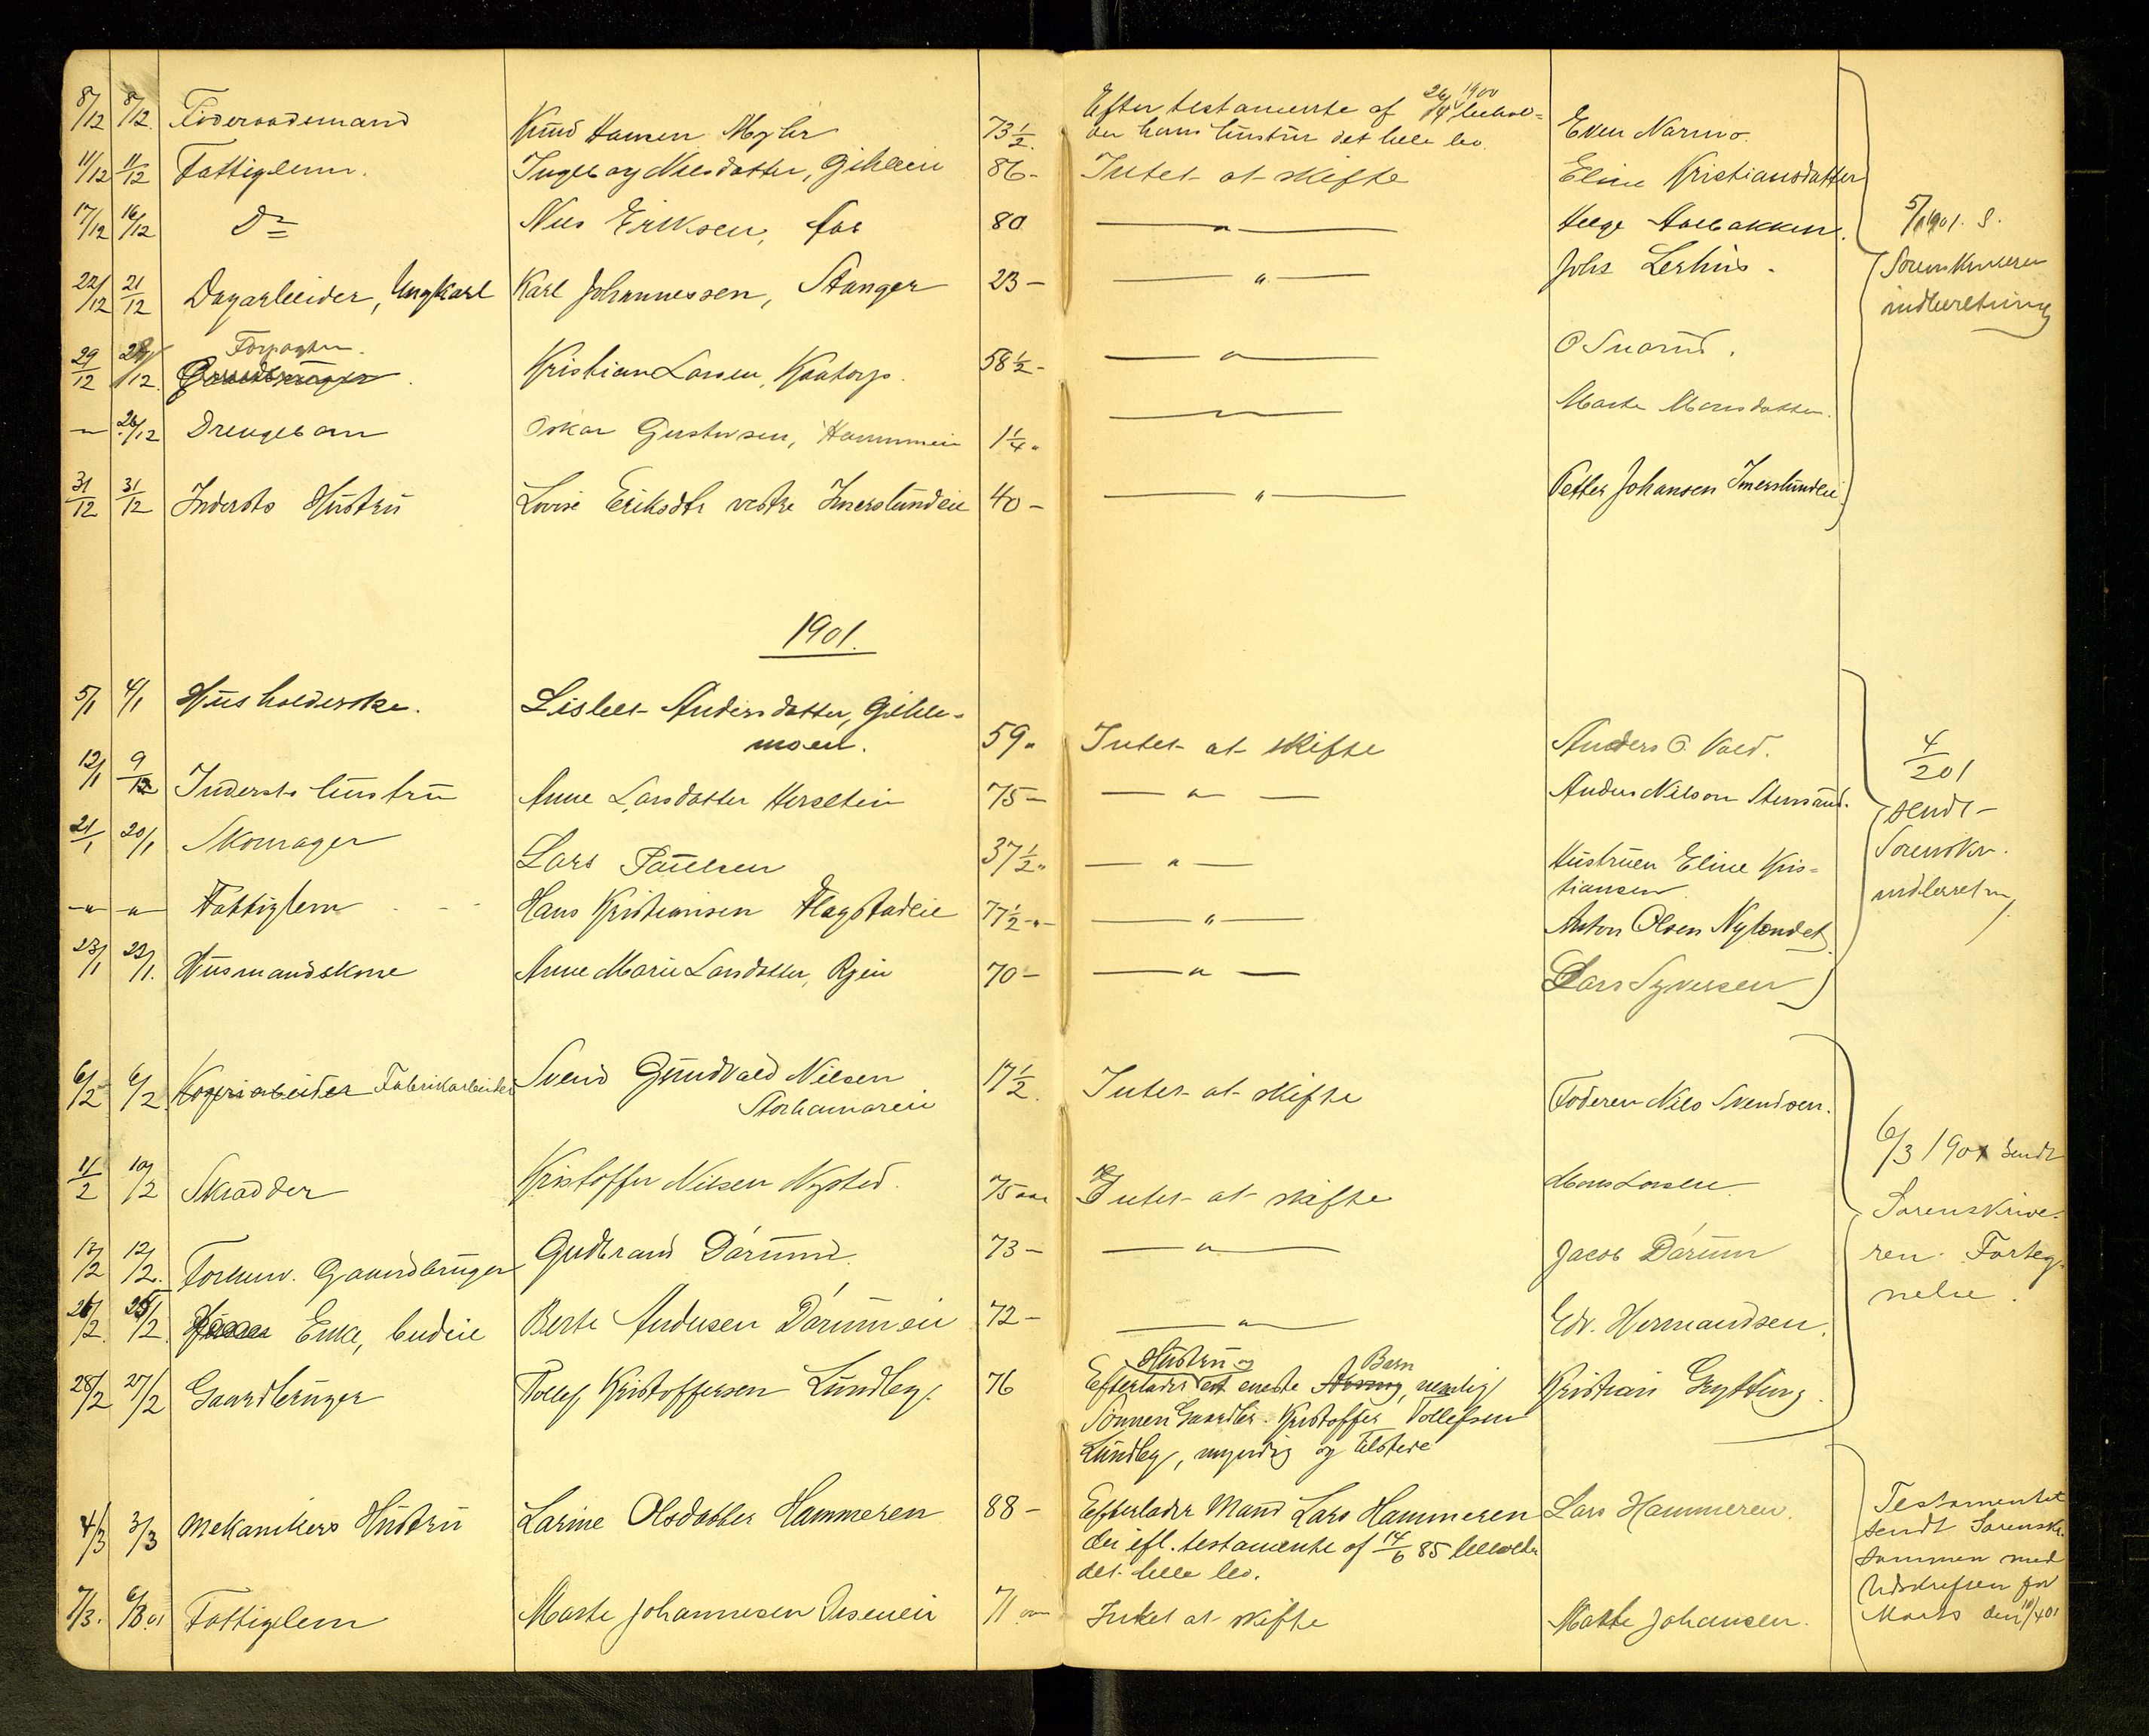 8/12 8/12. Föderaadsmand Knud Hansen Myhr 73½ Efter testamente af 26/4 1900 behol-
der hans hustru det hele bo. Even Narmo.
11/12 11/12 Fattiglem. Ingeborg Nilsdatter, Gihleeie 86- Intet at skifte Eline Kristiansdatter
17/12 16/12 Do Nils Eriksen, 80 — " — Helge Aalbakken.
22/12 21/12 Dagarbeider, Ungkarl Karl Johannessen, Stanger 23- — " — Johs Lerhus.
Forpagter.
29/12 28/12. Gaardbruger. Kristian Larsen, Kaatorp. 58½- — " — O Snarud.
— 26/12 Drengebarn Oskar Gustavsen, Hammeren 1¼" — " — Marte Monsdatter.
31/12 31/12 Indersts Hustru Lovise Eriksdtr vestre Imerslundeie 40- — " — Petter Johansen Imerslundeie
5/1 1901. S.
Sorenskriveren
indberetning
1901.
5/1 4/1 Husholderske. Lisbet Andersdatter, Gihle-
moen. 59" Intet at skifte Anders O. Vold.
12/1 9/1 Indersts hustru Anne Larsdatter Herseteie 75- — " — Anders Nilsen Stensrud.
21/1 20/1 Skomager Lars Paulsen 37½" — " — Hustruen Eline Kris-
tiansen
—"— —"— Fattiglem Hans Kristiansen Flagstadeie 77½-"- — " — Anton Olsen Nylendet
23/1 22/1. Husmandskone Anne Marie Larsdatter, Ryeie 70- — " — Lars Syversen
4/2 01
sendt
Sorenskr.
indberetn
6/2 6/2. Fabrikarbeider Svend Gundvald Nilsen
Storhamareie 17½. Intet at skifte Faderen Nils Svendsen.
11/2 10/2 Skrædder Kristoffer Nilsen Nysted. 75 aar Intet at skifte Mons Larsen
13/2 12/2. Forhenv. Gaardbruger Gudbrand Dørum. 73- — " — Jacob Dørum
26/2. 25/2. Enke, budeie Berte Andersen Dørumeie 72- — " — Edv. Hermandsen.
28/2 27/2 Gaardbruger Tollef Kristoffersen Lundby. 76 Hustru og Barn
Efterlader et eneste Arving, nemlig Kristian Grytting.
Sønnen Gaardbr. Kristoffer Tollefsen
Lundby, myndig og tilstede
6/3 1901 sendt
Sorenskrive-
ren Forteg-
nelse.
4/3 3/3 Mekanikers Hustru Larine Olsdatter Hammeren 88- Efterlader Mand Lars Hammeren Lars Hammeren.
der efl. testamente af 14/6 85 beholder
det hele bo.
7/3. 6/3.01 Fattiglem Marte Johannesen 71 aar Intet at skifte Matte Johansen.
Testamentet
sendt Sorenskr.
sammen med
Udskriften for
Marts den 10/4 01